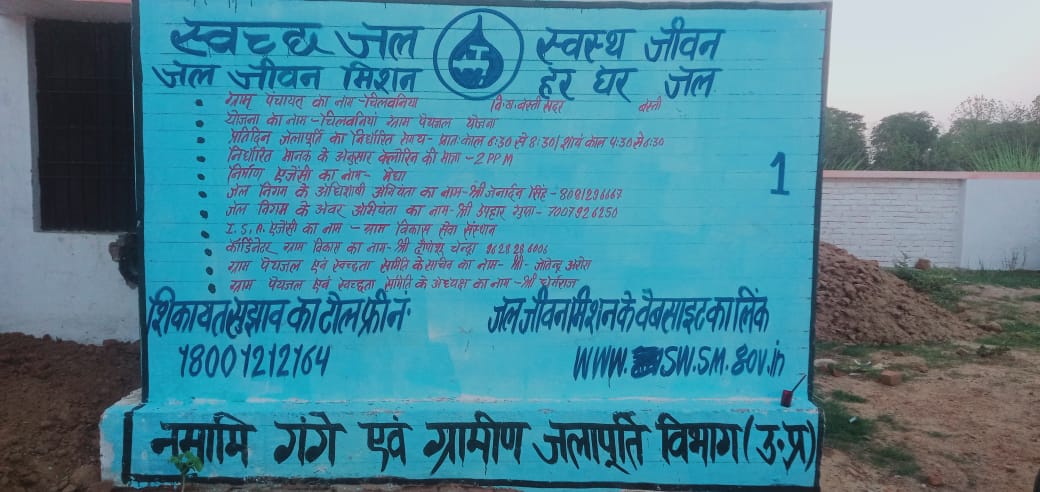 स्वच्छ जल स्वस्थ जीवन
जल जीवन मिशन हर घर जल
• ग्राम पंचायत का नाम - चिलवनिया वि.ख. बस्ती सदर बस्ती
• योजना का नाम - चिलवनियां ग्राम पेयजल योजना
• प्रतिदिन जलापूर्ति का निर्धारित समय - प्रातः काल 6:30 से 8:30/शायं काल 4:30 से 6:30
• निर्धारित मानक के अनुसार क्लोरिन की मात्रा - 2 PPM
• निर्माण एजेंसी का नाम - मेघा
• जल निगम के अधिशाषी अभियंता का नाम - श्री जनार्दन सिंह -
• जल निगम के अवर अभियंता का नाम - श्री उपहार गुप्ता - 7007926250
• I.S.A. एजेंसी का नाम - ग्राम विकास सेवा संस्थान
• कॉर्डिनेटर ग्राम विकास का नाम - श्री चन्द्रा
• ग्राम पेयजल एवं स्वच्छता समिति के सचिव का नाम - श्री -
• ग्राम पेयजल एवं स्वच्छता समिति के अध्यक्ष का नाम - श्री
1
शिकायत सुझाव का टोल फ्री नं॰ जल जीवन मिशन के वेबसाइट का लिंक
18001212164 www. SWSM.gov.in
नमामि गंगे एवं ग्रामीण जलापूर्ति विभाग (उ॰प्र)